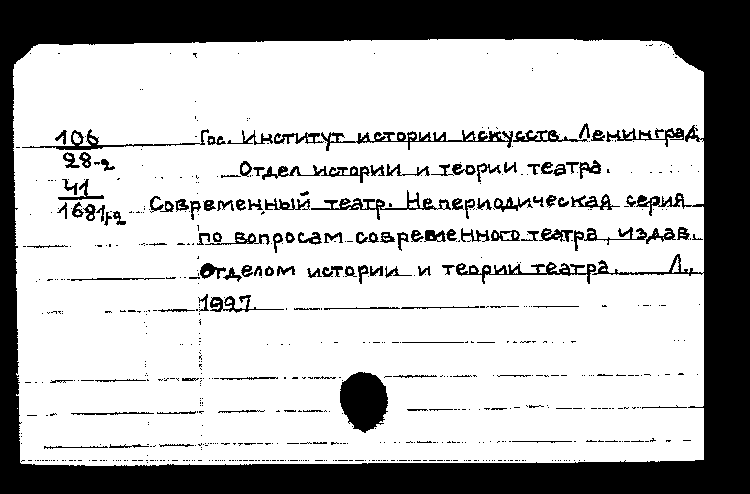 106 Гос. Институт истории искусств. Ленинград
28-2 Отдел истории и теории театра.
41 Современный театр. Непериодическая серия
1681 по вопросам современного театра, издав.
отделом истории и теории театра. Л.,
1927.